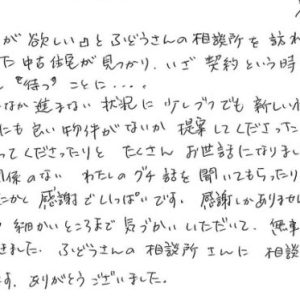 が欲しい」とふどうさんの相談所を訪れ
た中古住宅が見つかり、いざ契約という時
"待つ" ことに・・・。
なか進まない状況に少しブツでも新しい
にも良い物件がないか提案してくださった
ってくださったりとたくさんお世話になりまし
係のない わたしのグチ話を聞いてもらったり
にかく感謝でいっぱいです。感謝しかありませ
細かいところまで気づかいいただいて、無事
きました。ふどうさんの相談所さんに相談
す。ありがとうございました。